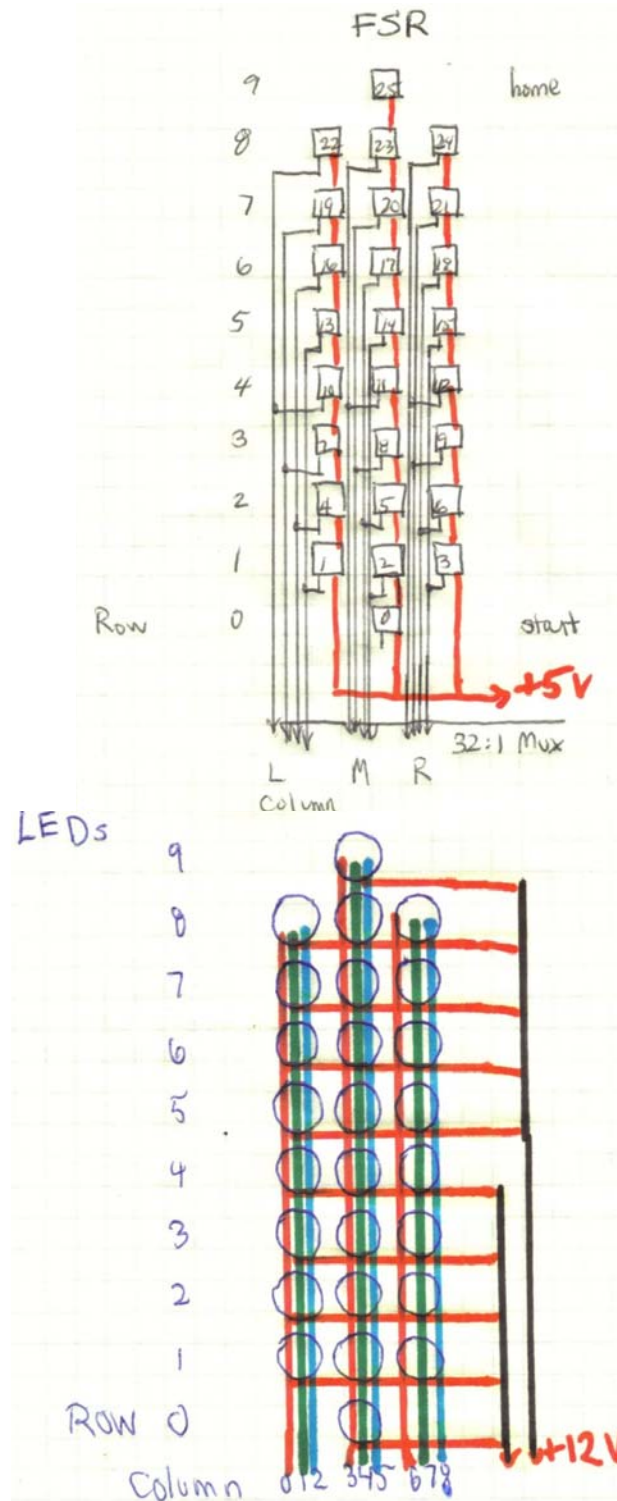 FSR
9 25 home
8 22 23 24
7 19 20 21
6 16 17 18
5 13 14 15
4 10 11 12
3 7 8 9
2 4 5 6
1 1 2 3
Row 0 0 start
+5V
32:1 Mux
L M R
Column
LEDs
9
8
7
6
5
4
3
2
1
ROW 0
+12V
Column 012 345 678